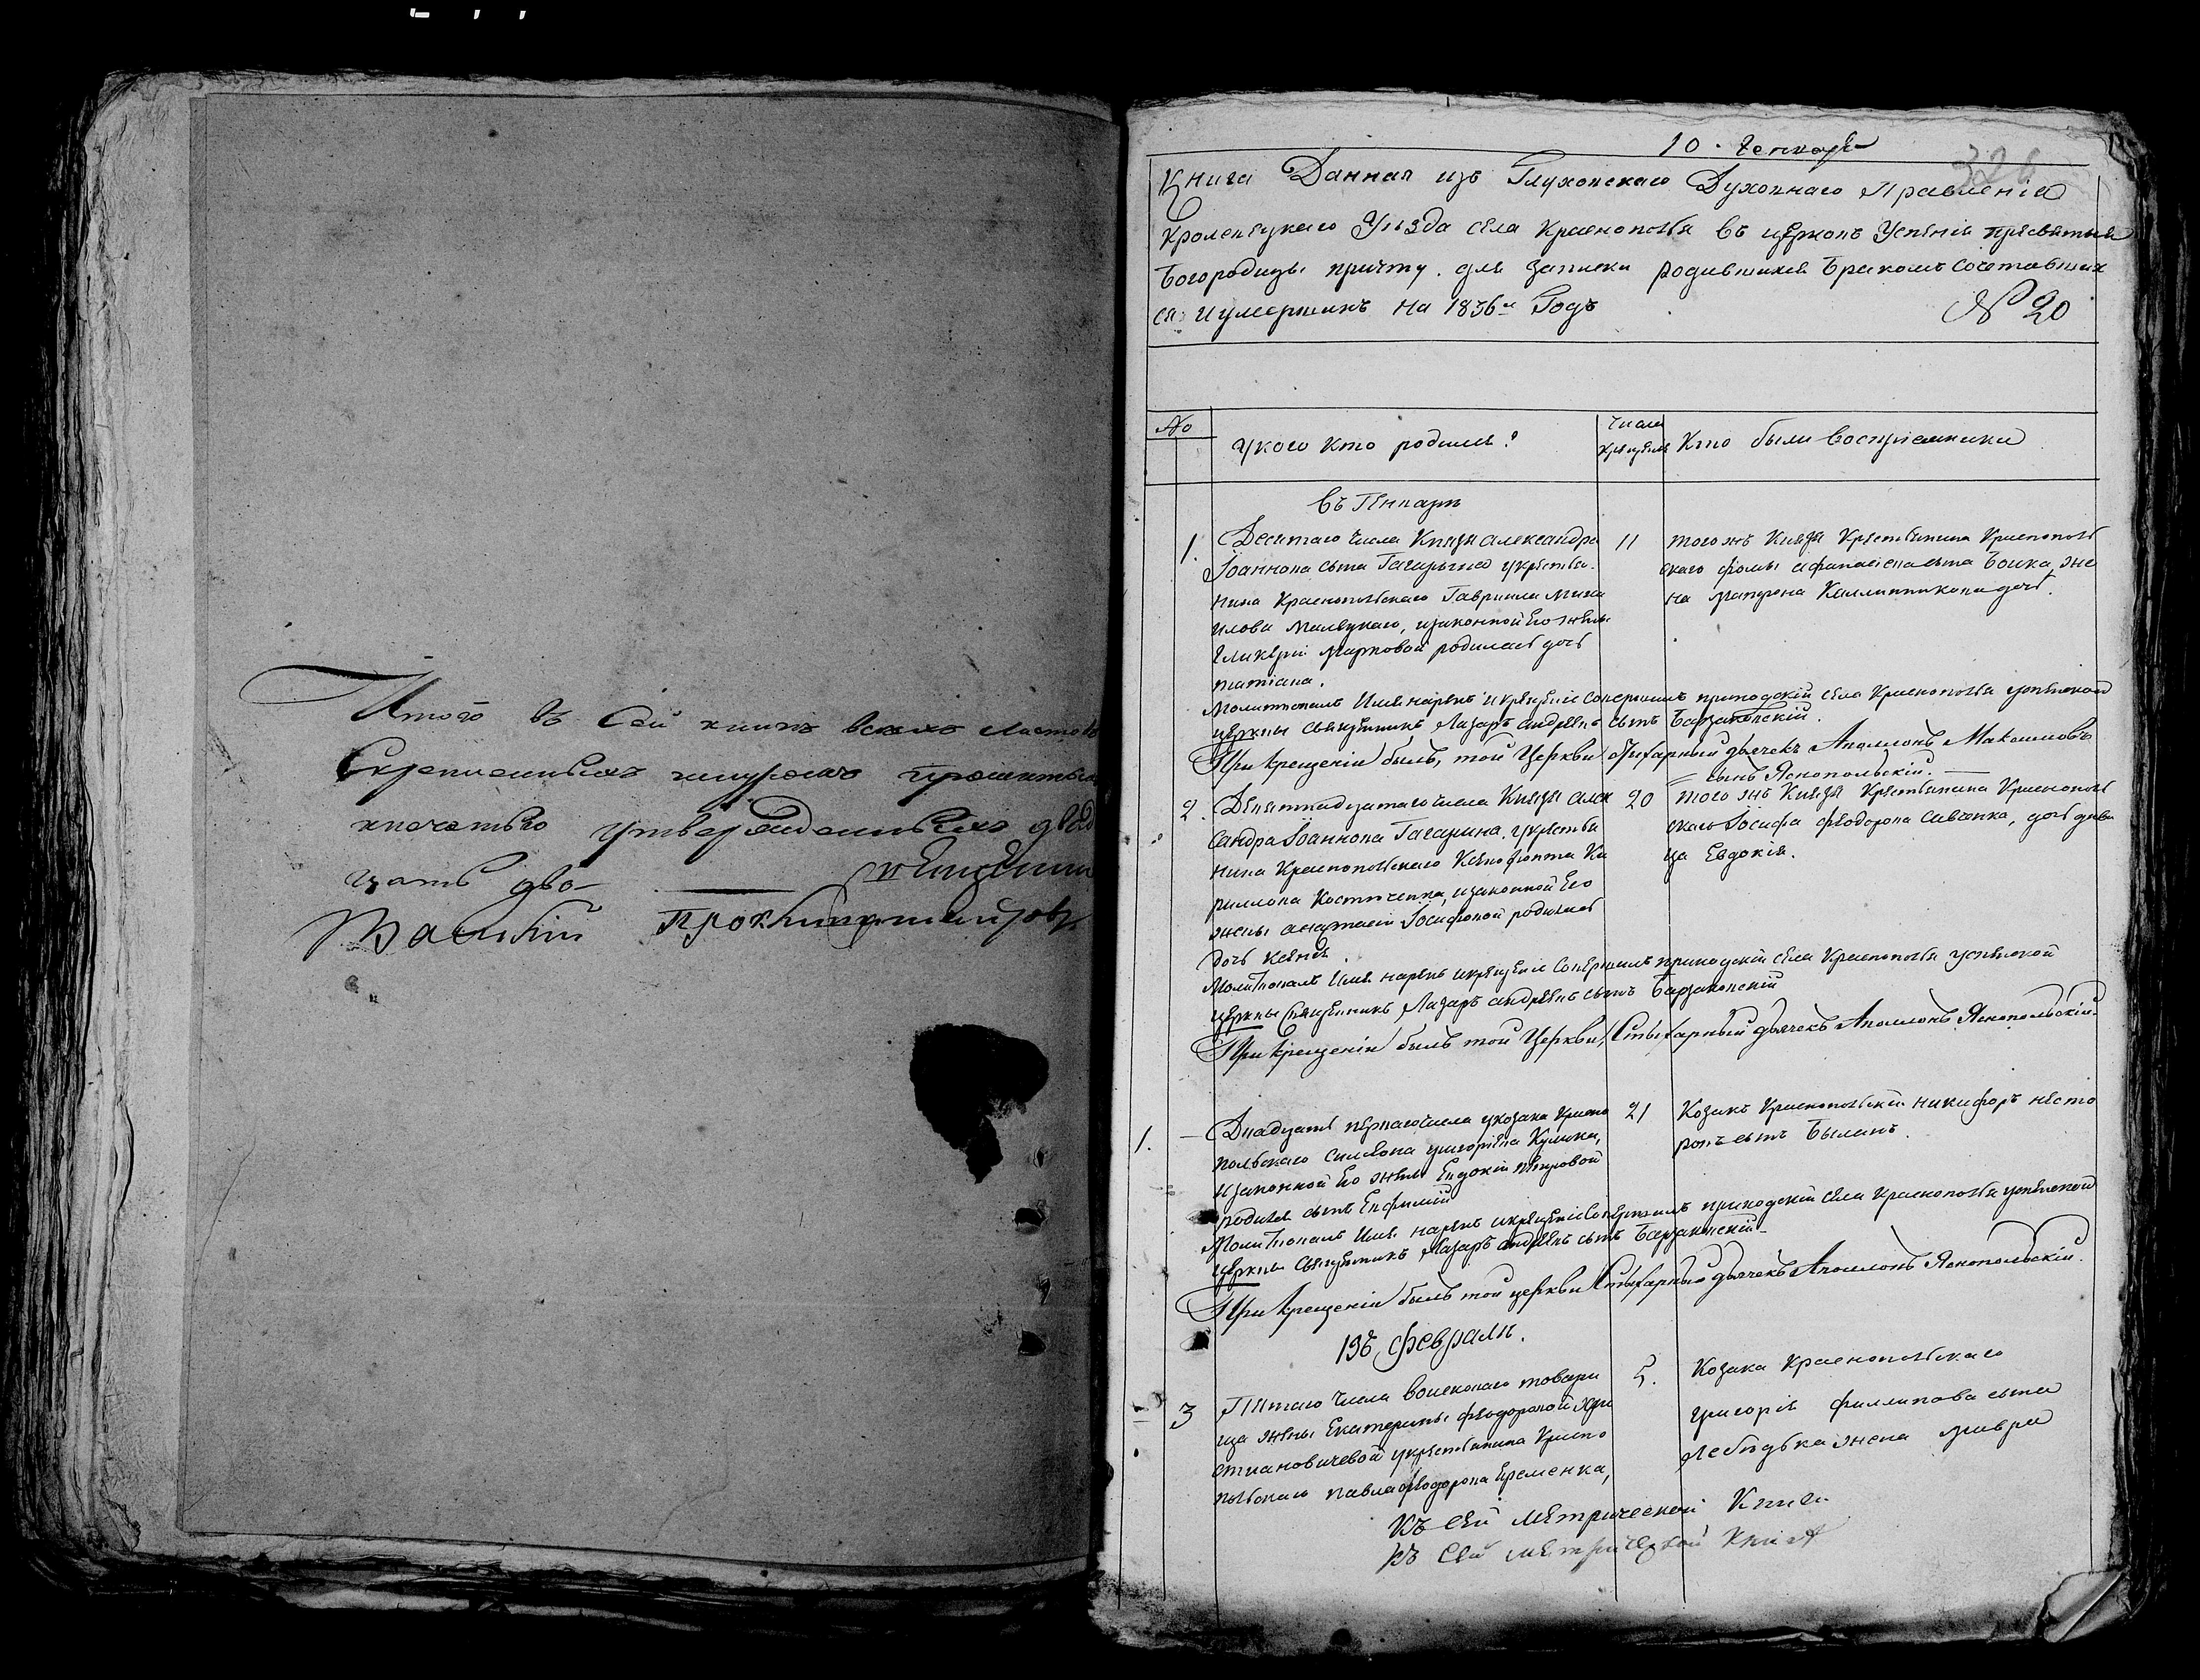 Итого въ Сей книге всехъ листовъ
Скрепленныхъ шнуромъ
и печатью утвержденныхъ двад
цать два
10. Генваря
326
Книга Данная изъ Глуховскаго Духовнаго Правленія
Кролевецкаго Уезда села Краснополья въ церковъ Успенія пресвятыя
Богородицы причту. для записки родившихся бракомъ сочетавших
ся и умершихъ на 1836й Годъ
№ 20
№
У кого кто родился?
Число крещенія
Кто были воспріемники
въ Генваре
1.
Десятаго числа Князя Александра
Іоаннова сына Гагарына у крестья
нина Краснопольскаго Гавриила Миха
илова Малецкаго, и законной Его жены
Гликеріи Марковой родилась дочь
татіана.
11
того жъ Князя крестьянина Краснополь
скаго Фомы Афанасіева сына Бойка, же
на Матрона Каллиникова дочь.
Молитвовалъ Имя нарекъ и крещеніе совершилъ приходскій села Краснополья успенской
церквы священникъ Лазаръ андреевъ сынъ Барзаковскій.
При крещеніи былъ, той Церкви Стыхарный дьячекъ Аполлонъ Максимовъ
сынъ Яснопольскій.
2.
Девятнадцатаго числа Князя алек
сандра Іоаннова Гагарина, у крестья
нина Краснопольскаго Ксенофонта Ки
риллова Костюченка, и законной Его
жены анастасіи Іосифовой родилась
дочь ксенія.
20
того жъ Князя крестьянина Краснополь
скаго Іосифа феодорова Савченка, дочь деви
ца Евдокія.
Молитвовалъ Имя нарекъ и крещеніе совершилъ приходскій села Краснополья успенской
церквы священникъ Лазаръ андреевъ сынъ Барзаковскій
При крещеніи былъ той Церкви, Стыхарный дьячекъ Аполлонъ Яснопольскій.
1.
Двадцать перваго числа у козака Красно
польскаго Симеона григоріева Кулика,
и законной Его жены Евдокіи Петровой
родился сынъ Евфимій
21
Козакъ Краснопольскій никифоръ несто
ровъ сынъ Быланъ.
Молитвовалъ Имя нарекъ и крещеніе совершилъ приходскій села Краснополья успенской
церквы священникъ Лазаръ андреевъ сынъ Барзаковскій
При крещеніи былъ той церкви Стыхарный дьячекъ Аполлонъ Яснопольскій.
Въ феврале.
3
Пятаго числа воисковаго товари
ща жены Екатерины феодоровой Хри
стиановичевой у крестьянина Красно
польскаго павла феодорова Еременка,
5.
Козака Краснопольскаго
григорія филлипова сына
Лебедька жена мавра
Къ Сей Метрической Книги
Къ Сей метрической Книге